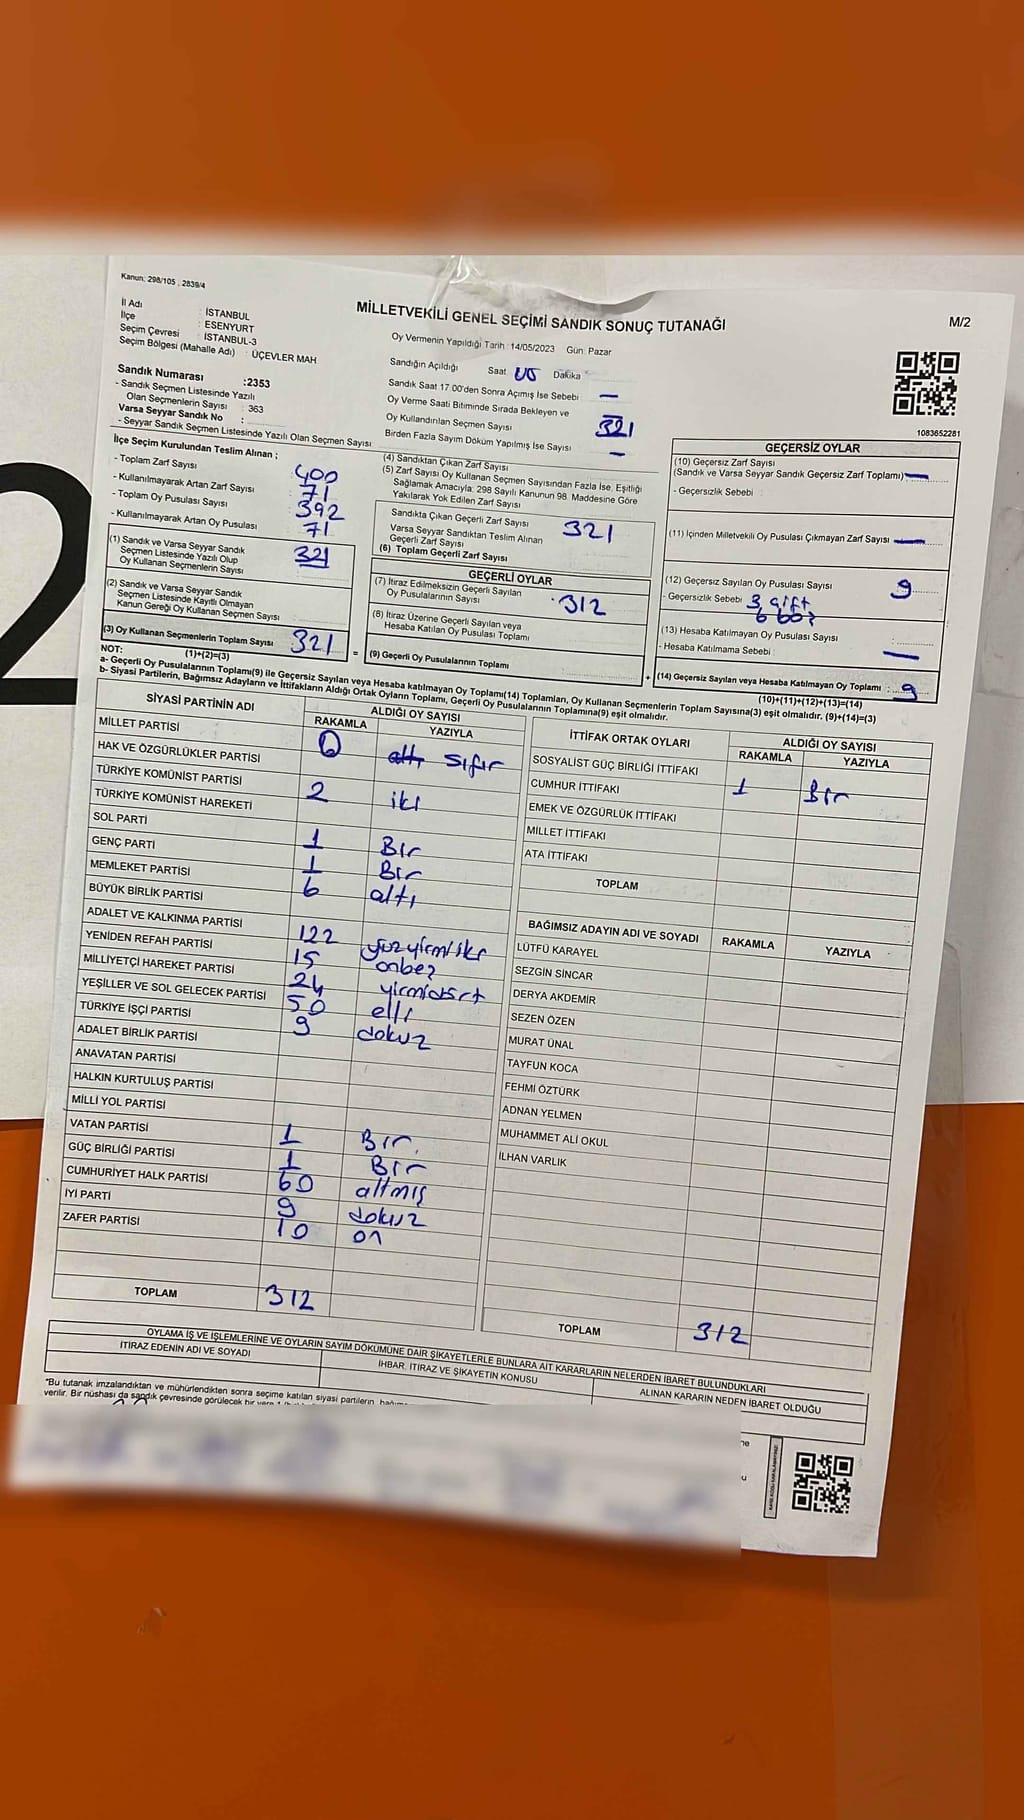 Kanun: 298/105 , 2839/4
MİLLETVEKİLİ GENEL SEÇİMİ SANDIK SONUÇ TUTANAĞI
M/2
İl Adı : İSTANBUL
İlçe : ESENYURT
Seçim Çevresi : İSTANBUL-3
Seçim Bölgesi (Mahalle Adı) : ÜÇEVLER MAH
Sandık Numarası :2353
- Sandık Seçmen Listesinde Yazılı
Olan Seçmenlerin Sayısı : 363
Varsa Seyyar Sandık No :
- Seyyar Sandık Seçmen Listesinde Yazılı Olan Seçmen Sayısı :
Oy Vermenin Yapıldığı Tarih :14/05/2023 Gün: Pazar
Sandığın Açıldığı Saat Dakika
Sandık Saat 17.00'den Sonra Açımış İse Sebebi —
Oy Verme Saati Bitiminde Sırada Bekleyen ve
Oy Kullandırılan Seçmen Sayısı 321
Birden Fazla Sayım Döküm Yapılmış İse Sayısı —
1083652281
İlçe Seçim Kurulundan Teslim Alınan ;
- Toplam Zarf Sayısı 400
- Kullanılmayarak Artan Zarf Sayısı 71
- Toplam Oy Pusulası Sayısı 392
- Kullanılmayarak Artan Oy Pusulası 71
(1) Sandık ve Varsa Seyyar Sandık
Seçmen Listesinde Yazılı Olup
Oy Kullanan Seçmenlerin Sayısı 321
(2) Sandık ve Varsa Seyyar Sandık
Seçmen Listesinde Kayıtlı Olmayan
Kanun Gereği Oy Kullanan Seçmen Sayısı
(3) Oy Kullanan Seçmenlerin Toplam Sayısı 321
(1)+(2)=(3)
(4) Sandıktan Çıkan Zarf Sayısı
(5) Zarf Sayısı Oy Kullanan Seçmen Sayısından Fazla İse, Eşitliği
Sağlamak Amacıyla; 298 Sayılı Kanunun 98. Maddesine Göre
Yakılarak Yok Edilen Zarf Sayısı
Sandıkta Çıkan Geçerli Zarf Sayısı 321
Varsa Seyyar Sandıktan Teslim Alınan
Geçerli Zarf Sayısı
(6) Toplam Geçerli Zarf Sayısı
GEÇERLİ OYLAR
(7) İtiraz Edilmeksizin Geçerli Sayılan
Oy Pusulalarının Sayısı 312
(8) İtiraz Üzerine Geçerli Sayılan veya
Hesaba Katılan Oy Pusulası Toplamı
= (9) Geçerli Oy Pusulalarının Toplamı
GEÇERSİZ OYLAR
(10) Geçersiz Zarf Sayısı
(Sandık ve Varsa Seyyar Sandık Geçersiz Zarf Toplamı) —
- Geçersizlik Sebebi :
(11) İçinden Milletvekili Oy Pusulası Çıkmayan Zarf Sayısı —
(12) Geçersiz Sayılan Oy Pusulası Sayısı 9
- Geçersizlik Sebebi 3 çift
6 boş
(13) Hesaba Katılmayan Oy Pusulası Sayısı :
- Hesaba Katılmama Sebebi : —
+ (14) Geçersiz Sayılan veya Hesaba Katılmayan Oy Toplamı : 9
(10)+(11)+(12)+(13)=(14)
NOT:
a- Geçerli Oy Pusulalarının Toplamı(9) ile Geçersiz Sayılan veya Hesaba katılmayan Oy Toplamı(14) Toplamları, Oy Kullanan Seçmenlerin Toplam Sayısına(3) eşit olmalıdır. (9)+(14)=(3)
b- Siyasi Partilerin, Bağımsız Adayların ve İttifakların Aldığı Ortak Oyların Toplamı, Geçerli Oy Pusulalarının Toplamına(9) eşit olmalıdır.
SİYASİ PARTİNİN ADI ALDIĞI OY SAYISI
RAKAMLA YAZIYLA
MİLLET PARTİSİ 0 altı sıfır
HAK VE ÖZGÜRLÜKLER PARTİSİ
TÜRKİYE KOMÜNİST PARTİSİ 2 iki
TÜRKİYE KOMÜNİST HAREKETİ
SOL PARTİ 1 Bir
GENÇ PARTİ 1 Bir
MEMLEKET PARTİSİ 6 altı
BÜYÜK BİRLİK PARTİSİ
ADALET VE KALKINMA PARTİSİ 122 yüzyirmiiki
YENİDEN REFAH PARTİSİ 15 onbeş
MİLLİYETÇİ HAREKET PARTİSİ 24 yirmidört
YEŞİLLER VE SOL GELECEK PARTİSİ 50 elli
TÜRKİYE İŞÇİ PARTİSİ 9 dokuz
ADALET BİRLİK PARTİSİ
ANAVATAN PARTİSİ
HALKIN KURTULUŞ PARTİSİ
MİLLİ YOL PARTİSİ
VATAN PARTİSİ 1 Bir
GÜÇ BİRLİĞİ PARTİSİ 1 Bir
CUMHURİYET HALK PARTİSİ 60 altmış
İYİ PARTİ 9 dokuz
ZAFER PARTİSİ 10 on
TOPLAM 312
İTTİFAK ORTAK OYLARI ALDIĞI OY SAYISI
RAKAMLA YAZIYLA
SOSYALİST GÜÇ BİRLİĞİ İTTİFAKI
CUMHUR İTTİFAKI 1 Bir
EMEK VE ÖZGÜRLÜK İTTİFAKI
MİLLET İTTİFAKI
ATA İTTİFAKI
TOPLAM
BAĞIMSIZ ADAYIN ADI VE SOYADI RAKAMLA YAZIYLA
LÜTFÜ KARAYEL
SEZGİN SİNCAR
DERYA AKDEMİR
SEZEN ÖZEN
MURAT ÜNAL
TAYFUN KOCA
FEHMİ ÖZTÜRK
ADNAN YELMEN
MUHAMMET ALİ OKUL
İLHAN VARLIK
TOPLAM 312
OYLAMA İŞ VE İŞLEMLERİNE VE OYLARIN SAYIM DÖKÜMÜNE DAİR ŞİKAYETLERLE BUNLARA AİT KARARLARIN NELERDEN İBARET BULUNDUKLARI
İTİRAZ EDENİN ADI VE SOYADI İHBAR, İTİRAZ VE ŞİKAYETİN KONUSU ALINAN KARARIN NEDEN İBARET OLDUĞU
"Bu tutanak imzalandıktan ve mühürlendikten sonra seçime katılan siyasi partilerin,
verilir. Bir nüshası da sandık çevresinde görülecek bir yere